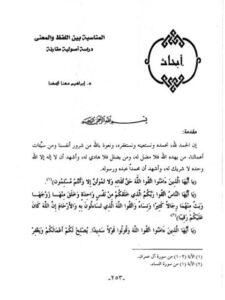 أبحاث
المناسبة بين اللفظ والمعنى
دراسة أصولية مقارنة
د. إبراهيم مهنا المهنا
مقدمة:
إن الحمد لله، نحمده ونستعينه ونستغفره، ونعوذ بالله من شرور أنفسنا ومن سيئات
أعمالنا، من يهده الله فلا مضل له، ومن يضلل فلا هادي له، وأشهد أن لا إله إلا الله
وحده لا شريك له، وأشهد أن محمداً عبده ورسوله.
﴿يَا أَيُّهَا الَّذِينَ آمَنُوا اتَّقُوا اللَّهَ حَقَّ تُقَاتِهِ وَلَا تَمُوتُنَّ إِلَّا وَأَنْتُمْ مُسْلِمُونَ﴾(١)
﴿يَا أَيُّهَا النَّاسُ اتَّقُوا رَبَّكُمُ الَّذِي خَلَقَكُمْ مِنْ نَفْسٍ وَاحِدَةٍ وَخَلَقَ مِنْهَا زَوْجَهَا
وَبَثَّ مِنْهُمَا رِجَالًا كَثِيرًا وَنِسَاءً وَاتَّقُوا اللَّهَ الَّذِي تَسَاءَلُونَ بِهِ وَالْأَرْحَامَ إِنَّ اللَّهَ كَانَ
عَلَيْكُمْ رَقِيبًا﴾(٢)
﴿يَا أَيُّهَا الَّذِينَ آمَنُوا اتَّقُوا اللَّهَ وَقُولُوا قَوْلًا سَدِيدًا. يُصْلِحْ لَكُمْ أَعْمَالَكُمْ وَيَغْفِرْ
(١) الآية ١٠٢ من سورة آل عمران.
(٢) الآية (١) من سورة النساء.
-٢٥٣-